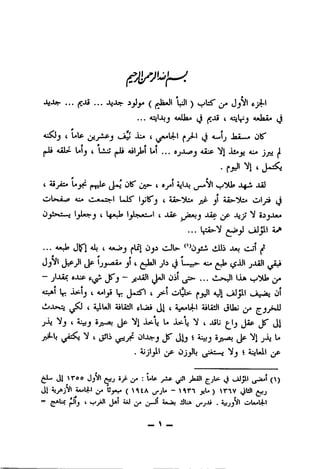 بسم الله الرحمن الرحيم
الجزء الأول من كتاب ( النبأ العظيم ) مولود جديد ... قديم ... جديد
في مقطعه ونهايته ، قديم في مطلعه وبدايته ...
كان مسقط رأسه في الحرم الجامعي ، منذ نيّف وعشرين عاماً ، ولكنه
لم يبرز منه يومئذ إلا عنقه وصدره ... أما أطرافه فلم تنشأ ، وأما خلقه فلم
يكتمل ، إلا اليوم .
لقد شهد طلاب الأمس بداية أمره ، حين كان يُملى عليهم نجوماً متفرقة ،
في فترات متلاحقة أو غير متلاحقة ، وكانوا كلما اجتمعت منه صفحات
معدودة لا تزيد عن عقد وبعض عقد ، استعجلوا طبعها ، وجعلوا يستحثون
همة المؤلف لوضع لاحقتها ...
ثم أتت بعد ذلك شئون(١) حالت دون إتمام وضعه ، بله إكمال طبعه ...
فبقي القدر الذي طبع منه حبيساً في دار الطبع ، أو مقصوراً على الرعيل الأول
من طلاب هذا البحث ... حتى أذن العلي القدير – وكل شيء عنده بمقدار –
أن يضيف المؤلف إليه اليوم حلقات أخر ، اكتمل بها قوامه ، وأخذ بها أهبته
للخروج من نطاق الثقافة الجامعية ، إلى فضاء الثقافة العالمية ، لكي يتحدث
إلى كل عقل واع ناقد ، لا يأخذ ما يأخذ إلا على بصيرة وبينة ، ولا يذر
ما يذر إلا على بصيرة وبينة ؛ وإلى كل وجدان تجريبي ذائق ، لا يكتفي بالخبر
عن المعاينة ؛ ولا يستغني بالوزن عن الموازنة .
(١) أمضى المؤلف في خارج القطر اثني عشر عاماً : من غرة ربيع الأول ١٣٥٥ إلى سلخ
ربيع الثاني ١٣٦٧ ( مايو ١٩٣٦ – مارس ١٩٤٨ ) مبعوثاً من الجامعة الأزهرية إلى
الجامعات الأوربية . فدرس هناك بضعة ألسن من لغة أهل الغرب ، وألم بمناهج –
– ١ –